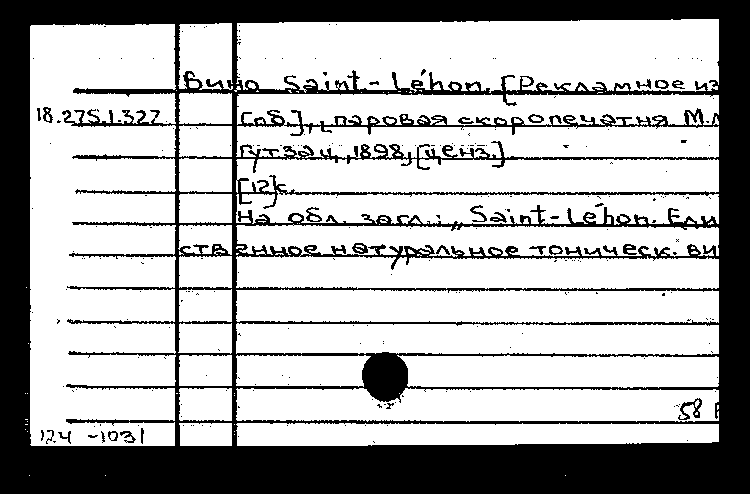 Вино Saint-Léhon. [Рекламное из
18.275.1.327 Спб.], паровая скоропечатня М.М.
Гутзац, 1898, [ценз.]
[12]с.
На обл. загл.: „Saint-Léhon. Един
ственное натуральное тоническ. ви
58
124-1031